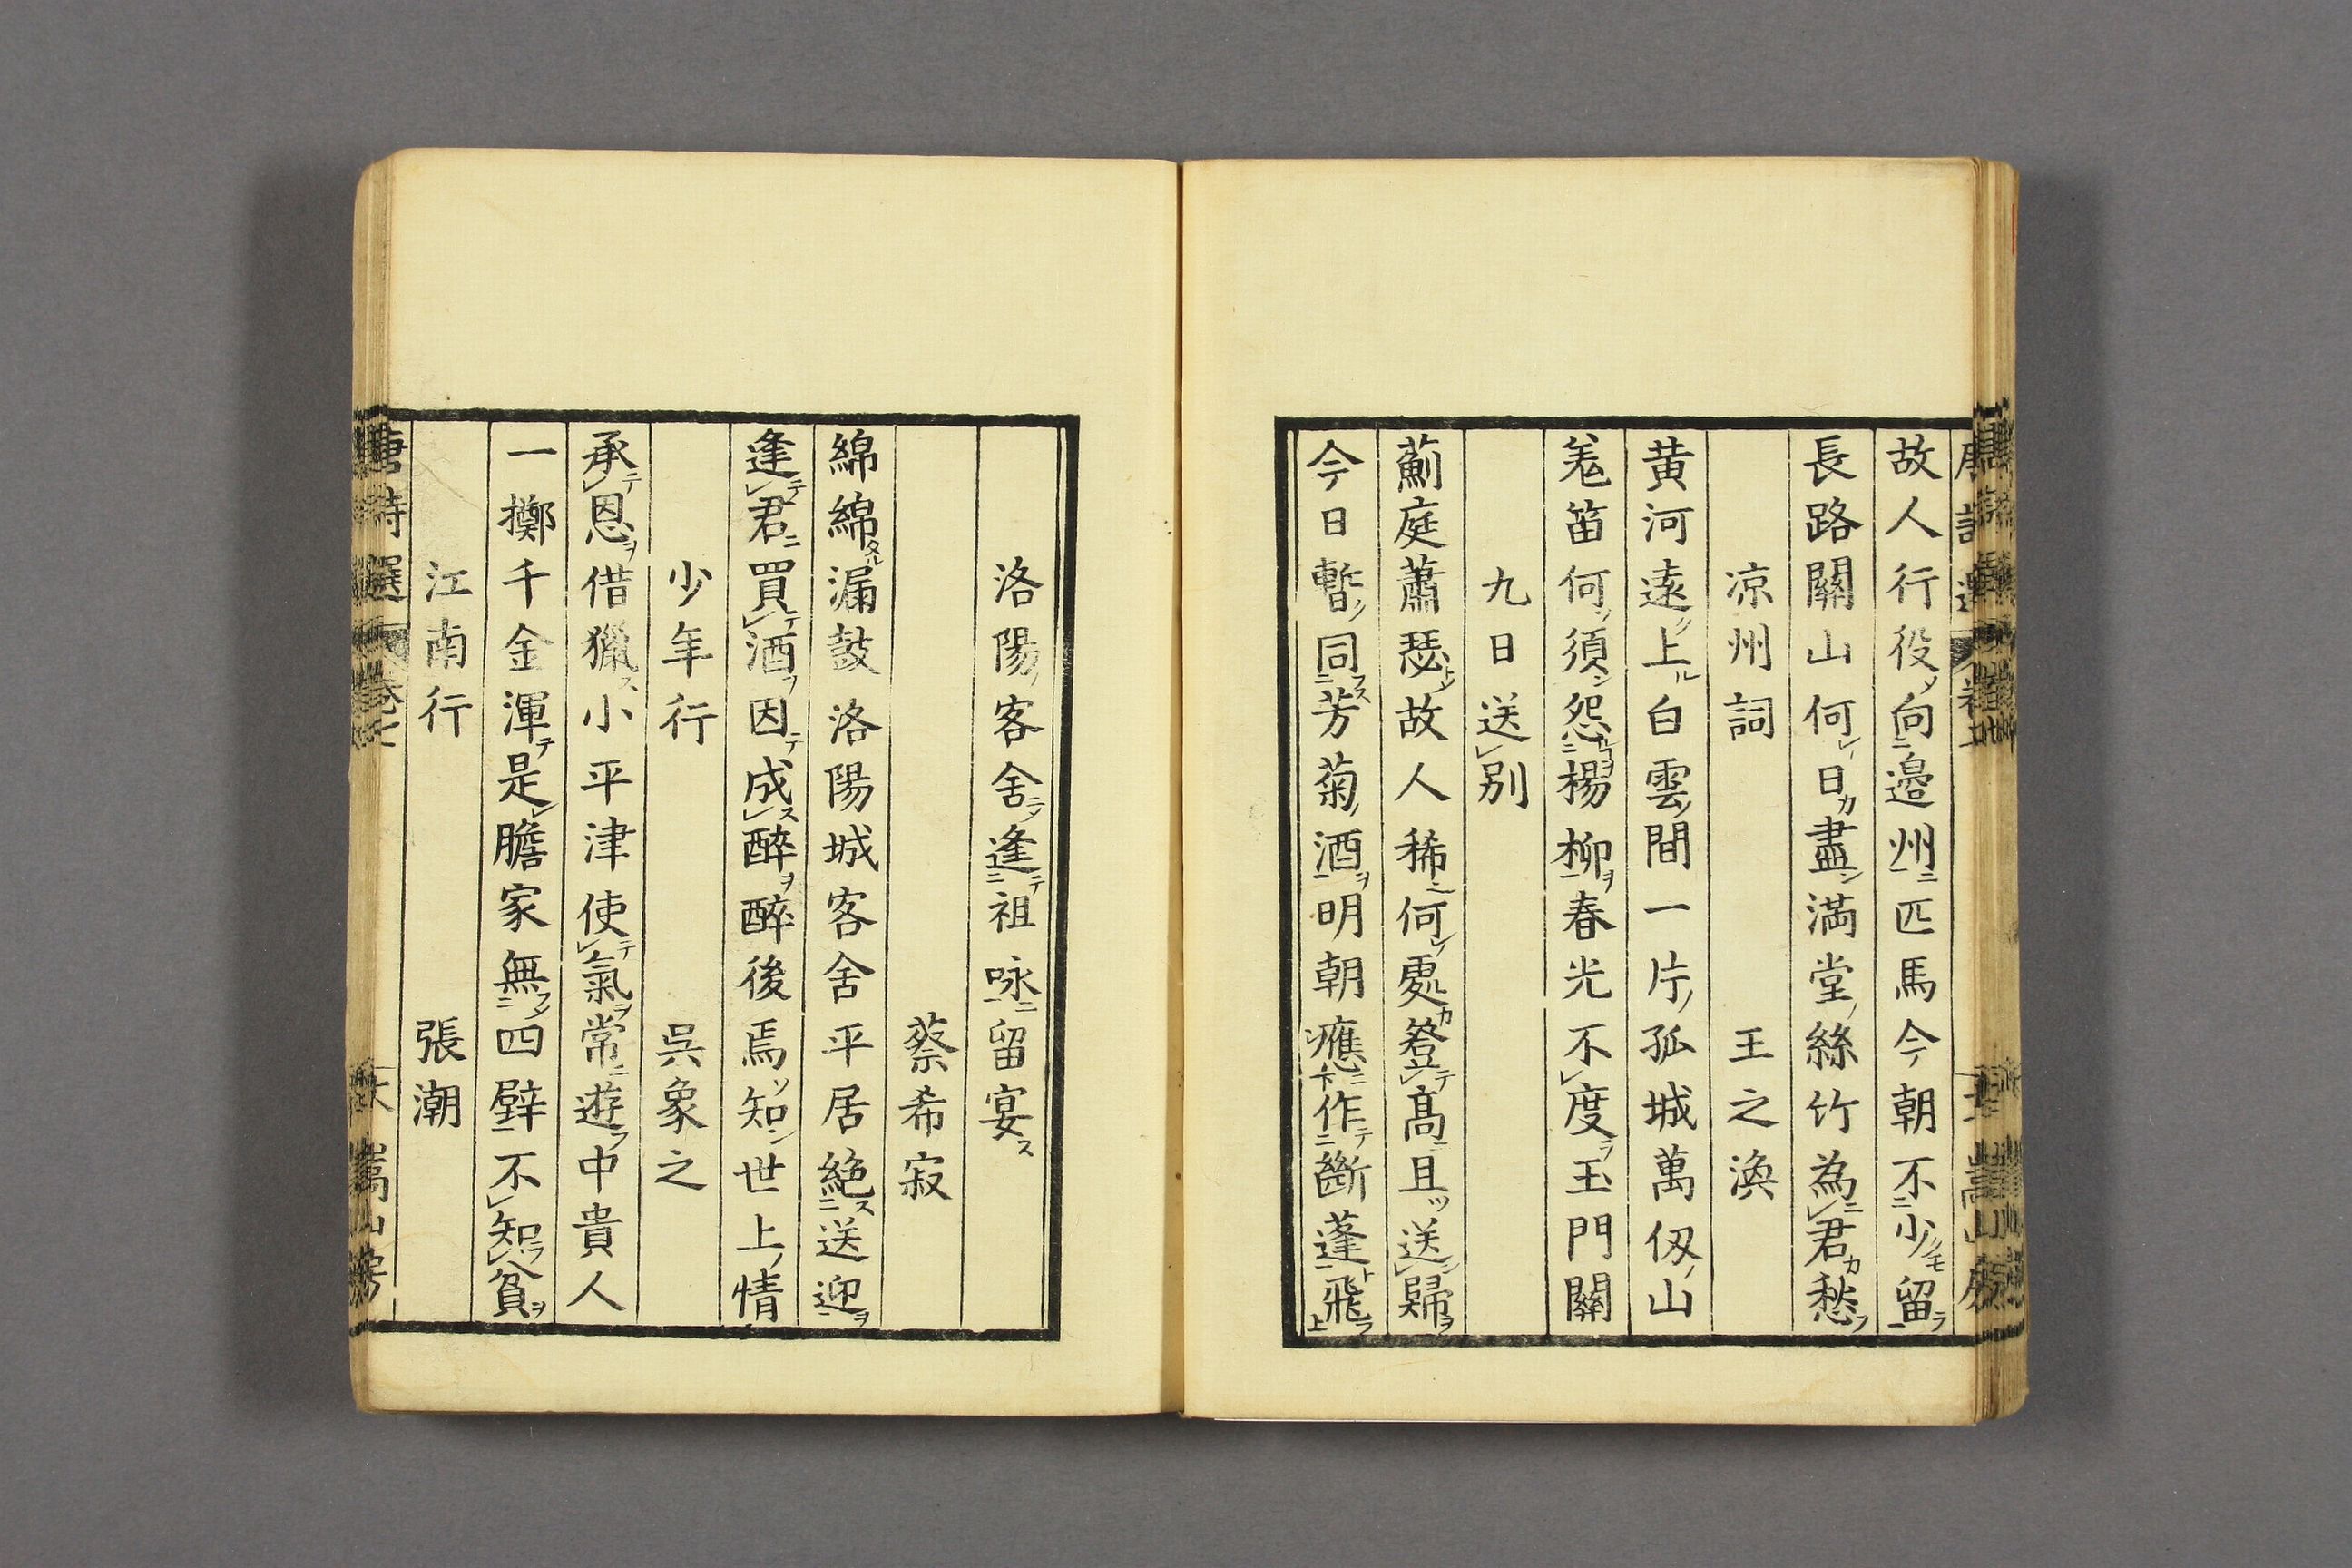 故人行役向邊州匹馬今朝不少留
長路關山何日盡滿堂絲竹為君愁
凉州詞　王之渙
黃河遠上白雲間一片孤城萬仭山
羗笛何須怨楊柳春光不度玉門關
九日送別
薊庭蕭瑟故人稀何處登高且送歸
今日暫同芳菊酒明朝應作斷蓬飛
洛陽客舍逢祖咏留宴
蔡希寂
綿綿漏鼓洛陽城客舍平居絶送迎
逢君買酒因成醉醉後焉知世上情
少年行　吳象之
承恩借獵小平津使氣常遊中貴人
一擲千金渾是膽家無四壁不知貧
江南行　張潮
唐詩選　卷七　嵩山房